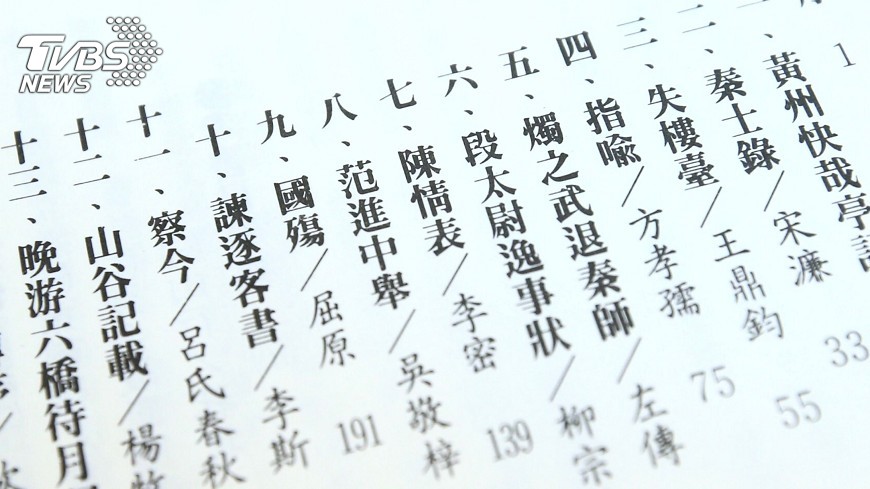 TVBS
NEWS
1
一、黃州快哉亭記
二、秦士錄/宋濂 33
三、失樓臺/王鼎鈞 55
四、指喻/方孝孺 75
五、燭之武退秦師/左傳
六、段太尉逸事狀/柳宗
七、陳情表/李密 139
八、范進中舉/吳敬梓
九、國殤/屈原 191
十、諫逐客書/李斯
十一、察今/呂氏春秋
十二、山谷記載/楊牧
十三、晚游六橋待月